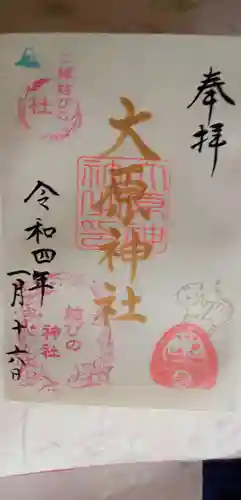 奉拝
大原神社
大原神社之印
ご縁結び
社
令和四年
一月十六日
結びの
神社